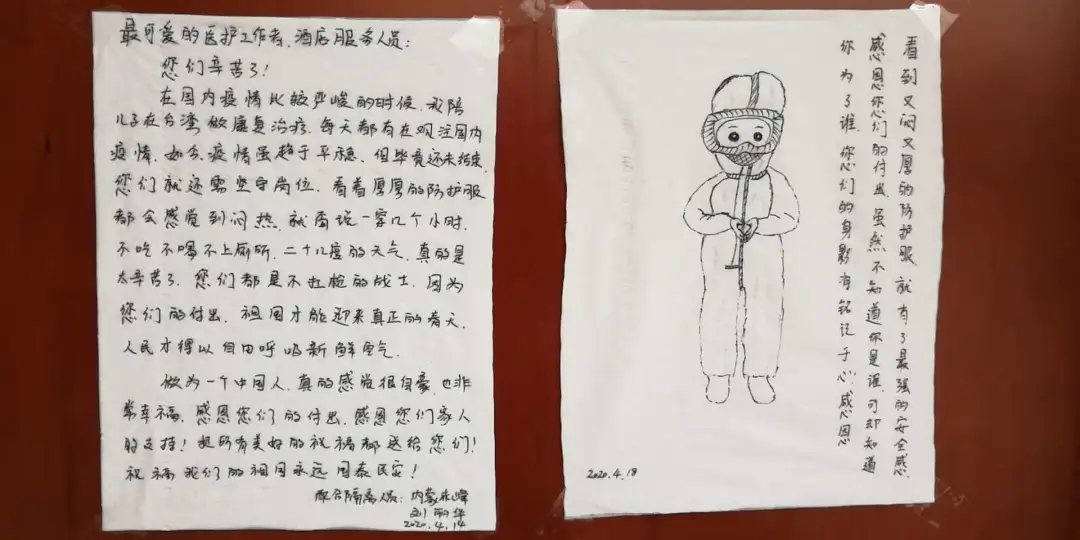 最可爱的医护工作者、酒店服务人员：
您们辛苦了！
在国内疫情比较严峻的时候，我陪
儿子在台湾做康复治疗，每天都有在观注国内
疫情，如今，疫情虽趋于平稳，但毕竟还未结束，
您们就还需坚守岗位，看着厚厚的防护服
都会感觉到闷热，就甭说一穿几个小时，
不吃不喝不上厕所，二十几度的天气，真的是
太辛苦了，您们都是不扛枪的战士，因为
您们的付出，祖国才能迎来真正的春天，
人民才得以自由呼吸新鲜空气。
做为一个中国人，真的感觉很自豪，也非
常幸福，感恩您们的付出，感恩您们家人
的支持！把所有美好的祝福都送给您们！
祝福我们的祖国永远国泰民安！
隔离人员：内蒙赤峰
刘丽华
2020.4.14
看到又闷又厚的防护服，就有了最强的安全感，
感恩你们的付出，虽然不知道你是谁，可却知道
你为了谁，你们的身影有铭记于心，感恩
2020.4.18